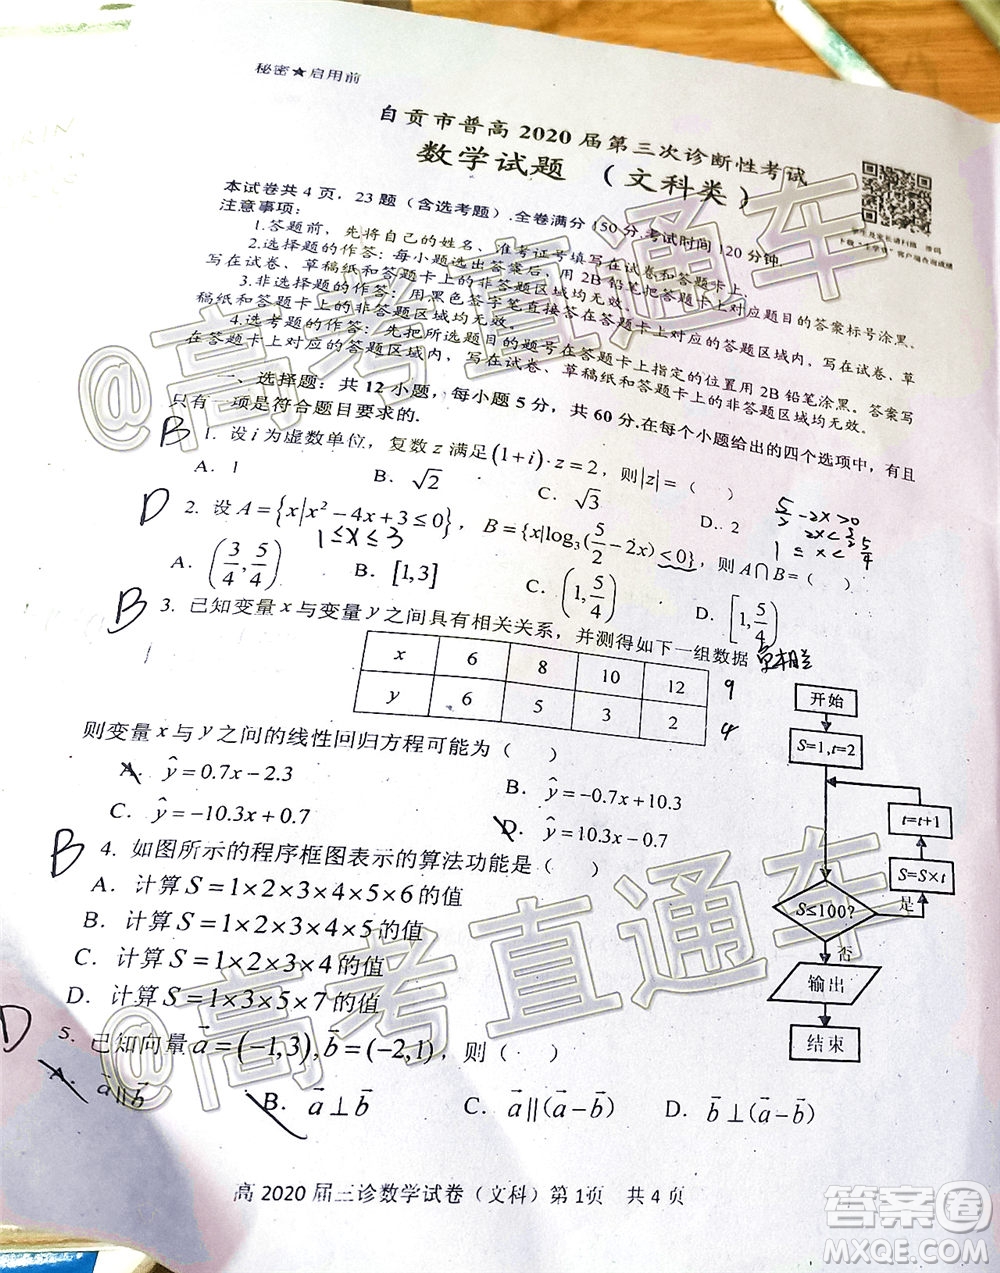 秘密★启用前
自贡市普高2020届第三次诊断性考试
数学试题 (文科类)
本试卷共4页，23题（含选考题）.全卷满分150分.考试时间120分钟.
注意事项：
1.答题前，先将自己的姓名、准考证号填写在试卷和答题卡上.
2.选择题的作答：每小题选出答案后，用2B铅笔把答题卡上对应题目的答案标号涂黑.
写在试卷、草稿纸和答题卡上的非答题区域均无效.
3.非选择题的作答：用黑色签字笔直接答在答题卡上对应的答题区域内，写在试卷、草
稿纸和答题卡上的非答题区域均无效.
4.选考题的作答：先把所选题目的题号在答题卡上指定的位置用2B铅笔涂黑。答案写
在答题卡上对应的答题区域内，写在试卷、草稿纸和答题卡上的非答题区域均无效。
一、选择题：共12小题，每小题5分，共60分.在每个小题给出的四个选项中，有且
只有一项是符合题目要求的.
B 1. 设i为虚数单位，复数z满足(1+i)·z=2，则|z|=（ ）
A. 1 B. √2 C. √3 D. 2
D 2. 设A={x|x²-4x+3≤0}，B={x|log₃(5/2-2x)≤0}，则A∩B=（ ）
1≤x≤3
5/2-2x>0
A. (3/4,5/4) B. [1,3] C. (1,5/4) D. [1,5/4)
B 3. 已知变量x与变量y之间具有相关关系，并测得如下一组数据
x 6 8 10 12 9
y 6 5 3 2 4
则变量x与y之间的线性回归方程可能为（ ）
A. ŷ=0.7x-2.3 B. ŷ=-0.7x+10.3
C. ŷ=-10.3x+0.7 D. ŷ=10.3x-0.7
B 4. 如图所示的程序框图表示的算法功能是（ ）
A. 计算S=1×2×3×4×5×6的值
B. 计算S=1×2×3×4×5的值
C. 计算S=1×2×3×4的值
D. 计算S=1×3×5×7的值
开始
S=1,t=2
t=t+1
S=S×t
S≤100?
是
否
输出
结束
D 5. 已知向量a⃗=(-1,3),b⃗=(-2,1)，则（ ）
A. a⃗∥b⃗ B. a⃗⊥b⃗ C. a⃗∥(a⃗-b⃗) D. b⃗⊥(a⃗-b⃗)
高2020届三诊数学试卷（文科）第1页 共4页
@高考直通车
@高考直通车
答案圈
MXQE.COM